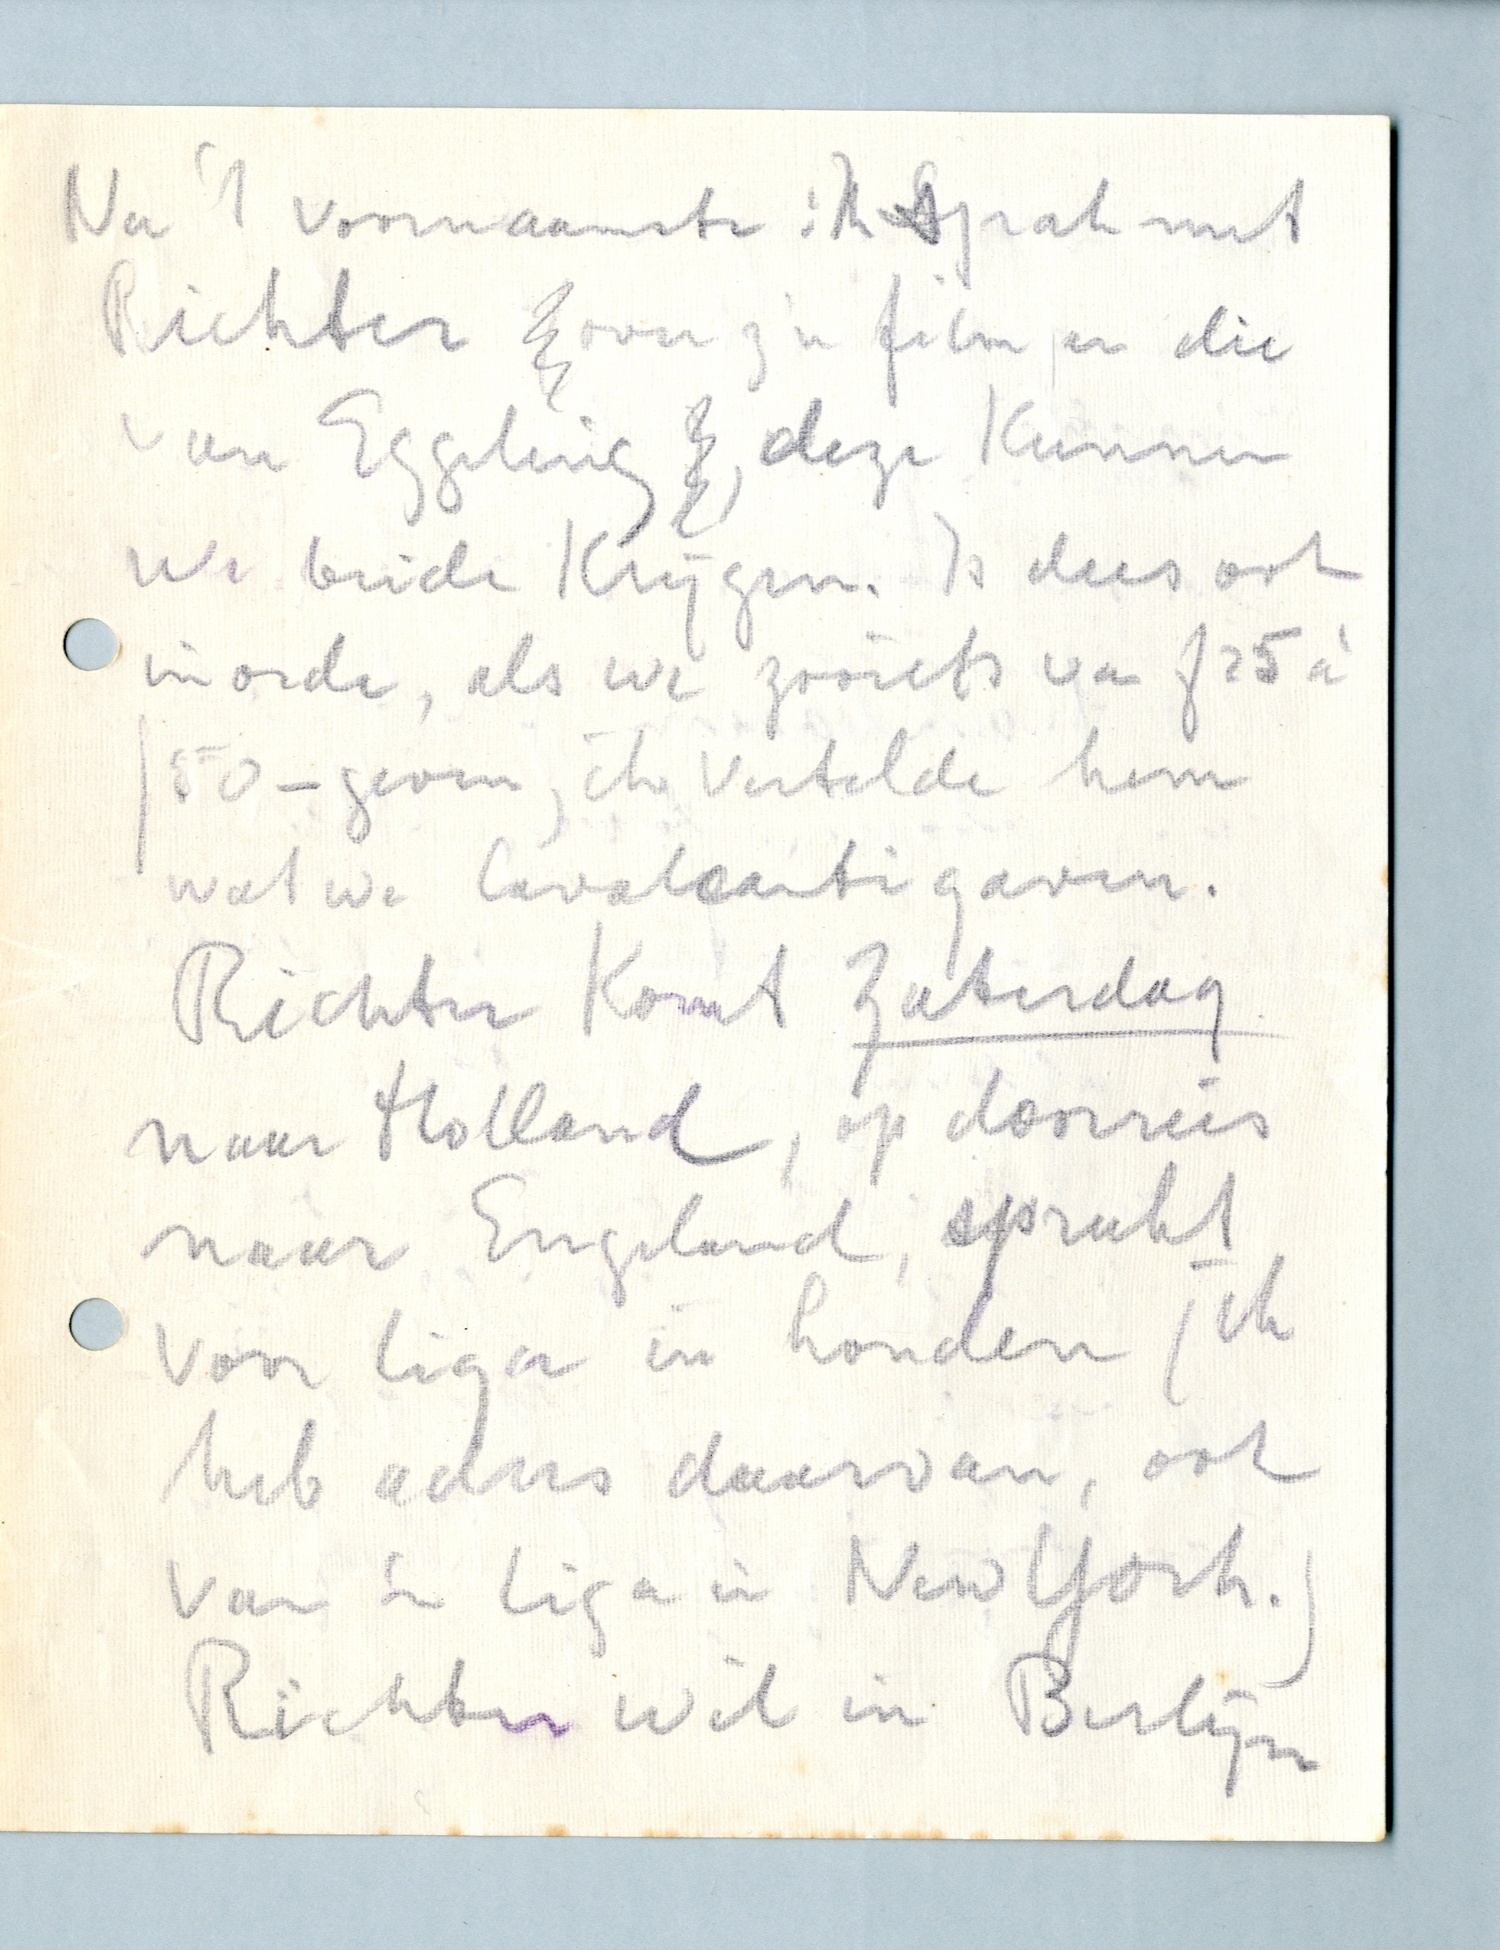 Nu 't voornaamste : ik sprak met
Richter over z'n film en die
van Eggeling, deze kunnen
we beide krijgen. Is dees ook
in orde, als we zooiets va f 25 à
f 50 – geven, ik vertelde hem
wat we Cavalcanti gaven.
Richter komt Zaterdag
naar Holland, op doorreis
naar Engeland, spreekt
voor liga in Londen (ik
heb adres daarvan, ook
van 'n liga in New York.)
Richter wil in Berlijn